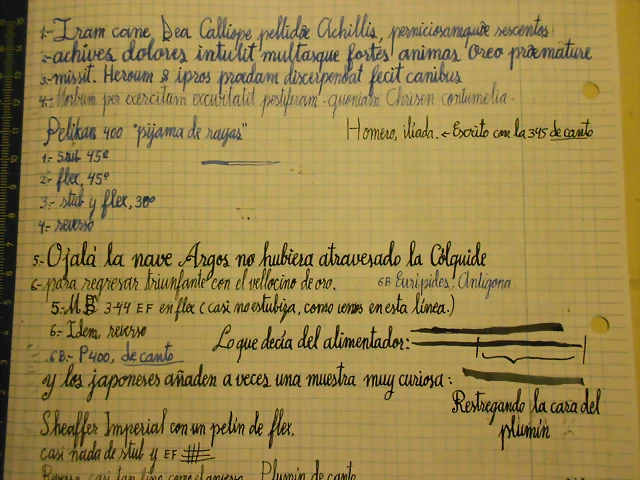 1.- Iram cane, Dea Calliope pellidæ Achillis, perniciosamquæ sescentos
2- achives dolores intulit multasque fortes animas Oreo præmature
3.- missit. Heroum & ipros prædam discerpendat fecit canibus
4.- Morbum per exercitum excuitatit pestiferam - quoniam Chrisen contumelia -
Pelikan 400 "pijama de rayas"
Homero, iliada. ← Escrito con la 345 de canto
1.- stub 45º
2.- flex, 45º
3.- stub y flex, 30º
4.- reverso
5.- Ojalá la nave Argos no hubiera atravesado la Cólquide
6.- para regresar triunfante con el vellocino de oro. 6B Eurípides, Antígona
5.- MB 3-44 EF en flex (casi no estubiza, como vemos en esta línea.)
6.- Idem reverso
Lo que decía del alimentador:
6B.- P400, de canto
y los japoneses añaden a veces una muestra muy curiosa:
Restregando la cara del
plumín
Sheaffer Imperial con un pelín de flex.
casi nada de stub y EF
Reverso casi tan fino como el anverso. Plumín de canto